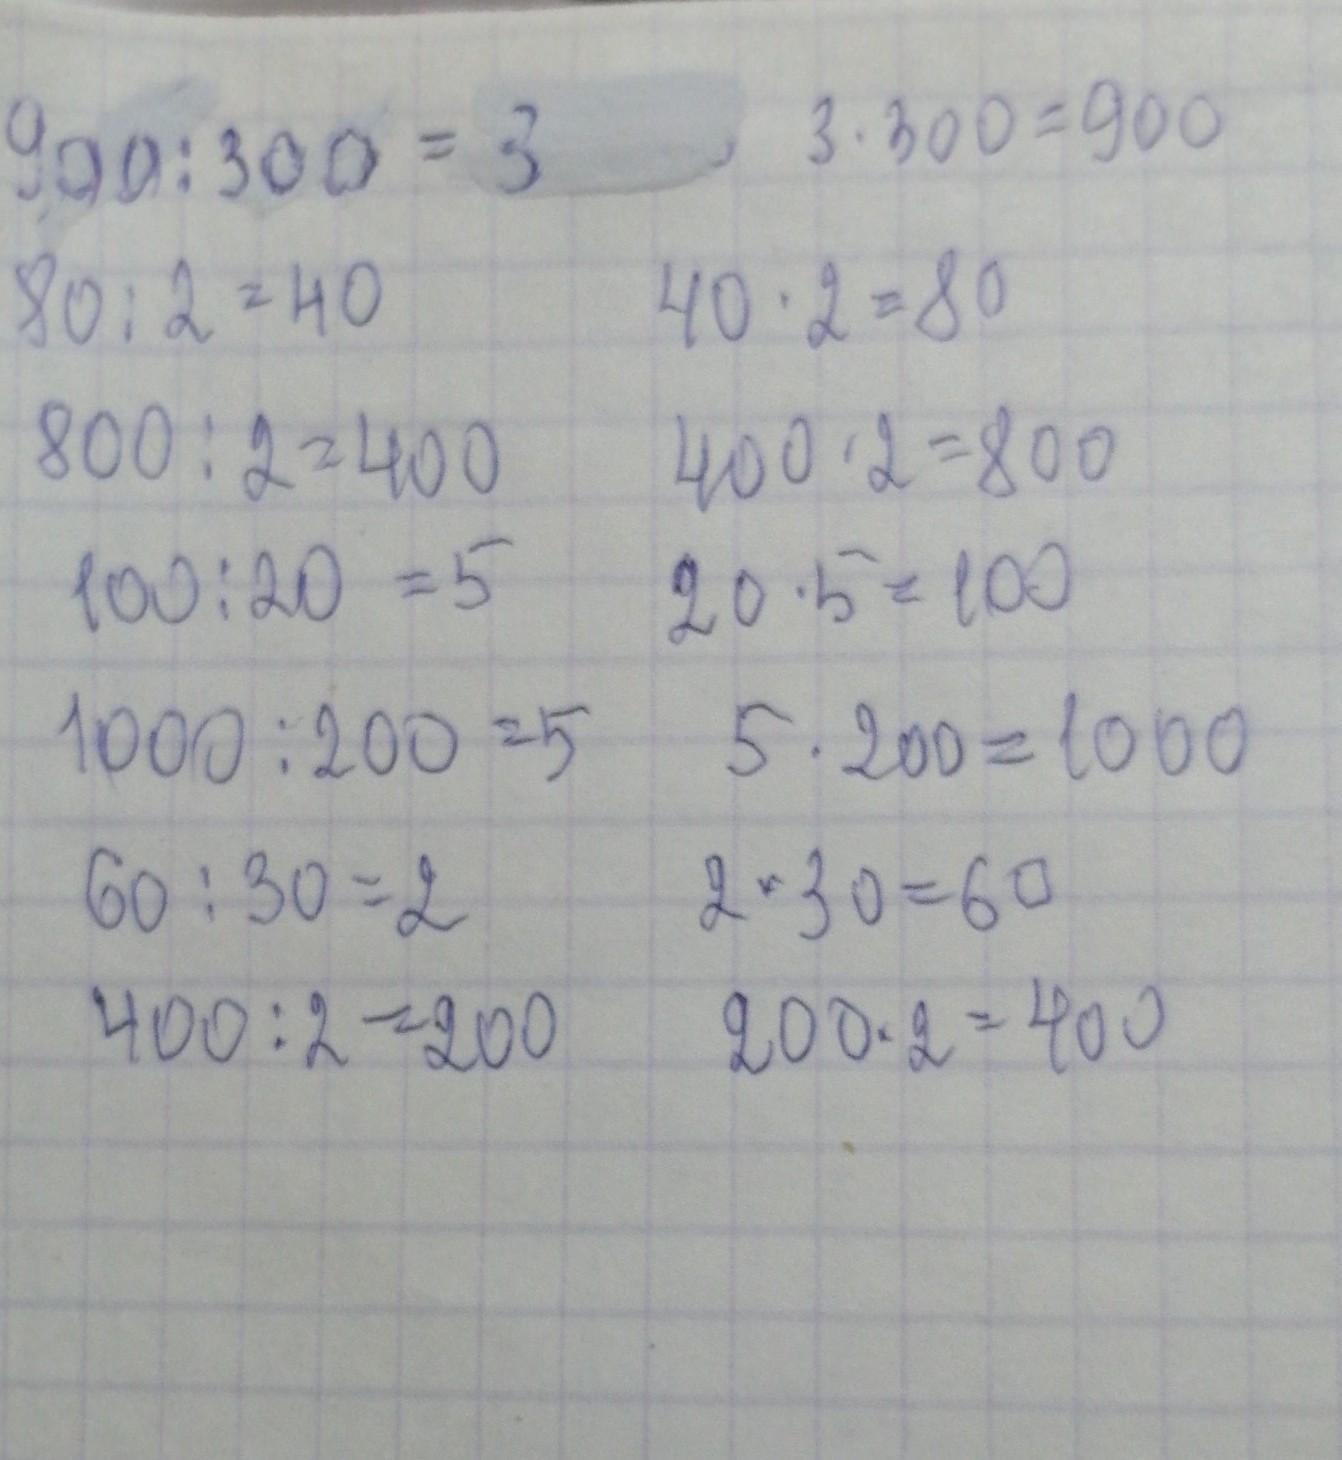 900:300 = 3 3·300=900
80:2=40 40·2=80
800:2=400 400·2=800
100:20 =5 20·5=100
1000:200=5 5·200=1000
60:30=2 2·30=60
400:2=200 200·2=400